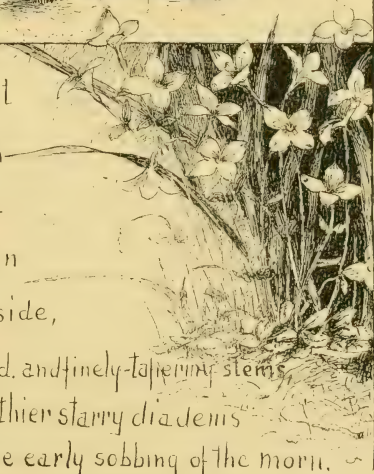 t
n
side,
d. and finely-tapering stems
thier starry diadems
e early sobbing of the morn.